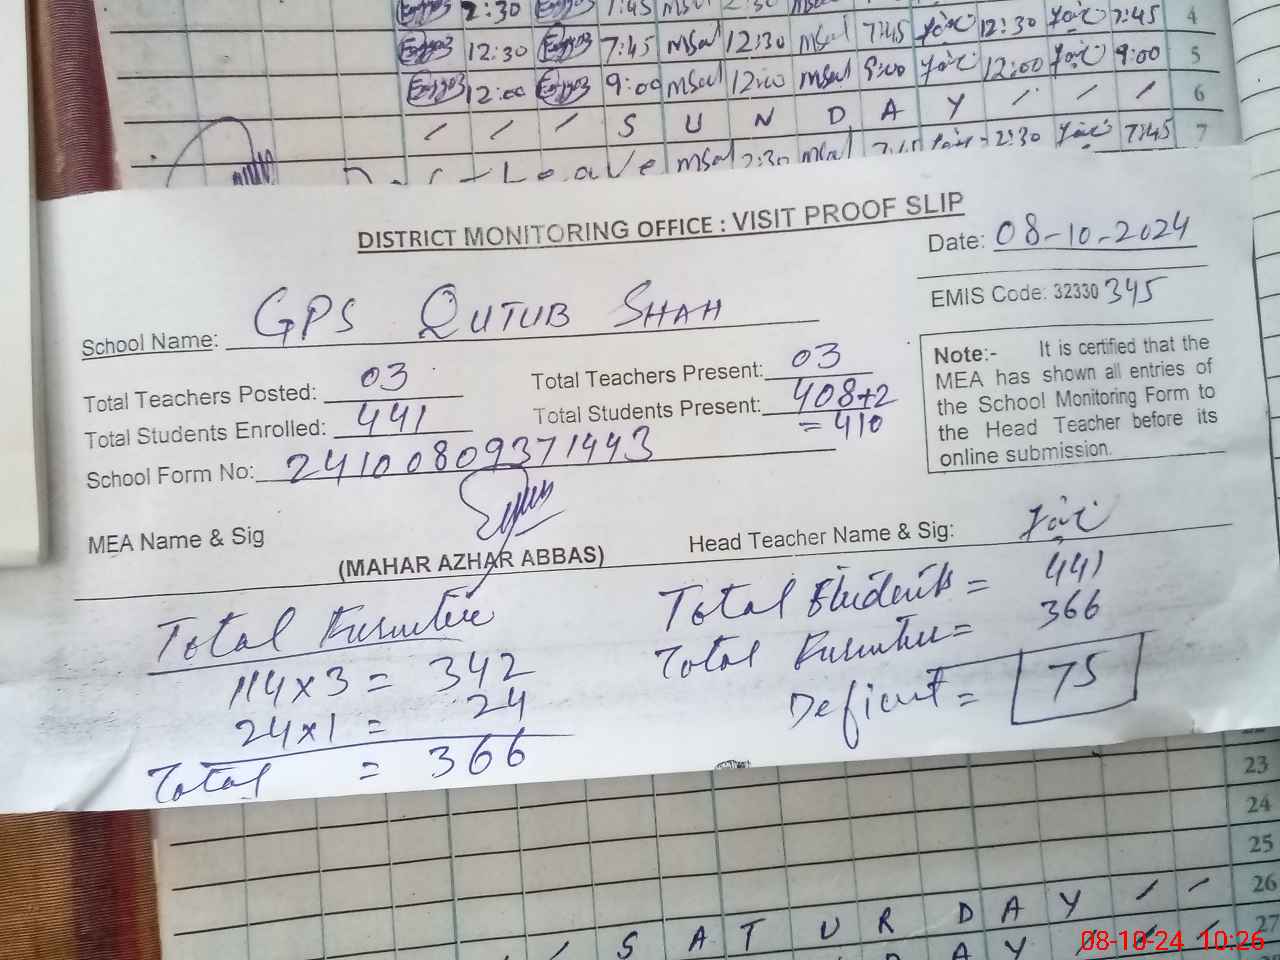 2:30 7:45 MSal 2:30 4
12:30 7:45 MSal 12:30 MSal 7:45 12:30 7:45 5
12:00 9:00 MSal 12:00 MSal 9:00 12:00 9:00 6
/ / / S U N D A Y / / / 7
Leave MSal 2:30 MSal 7:45 2:30 7:45
DISTRICT MONITORING OFFICE : VISIT PROOF SLIP
Date: 08-10-2024
EMIS Code: 32330345
School Name: GPS QUTUB SHAH
Total Teachers Posted: 03
Total Teachers Present: 03
Total Students Enrolled: 441
Total Students Present: 408+2
= 410
School Form No: 24100809371443
Note:- It is certified that the
MEA has shown all entries of
the School Monitoring Form to
the Head Teacher before its
online submission.
MEA Name & Sig
(MAHAR AZHAR ABBAS)
Head Teacher Name & Sig:
Total Furniture
114×3 = 342
24×1 = 24
Total = 366
Total Students = 441
Total Furniture = 366
Deficient = 75
23
24
25
26
S A T U R D A Y / / 27
A Y / / /
08-10-24 10:26